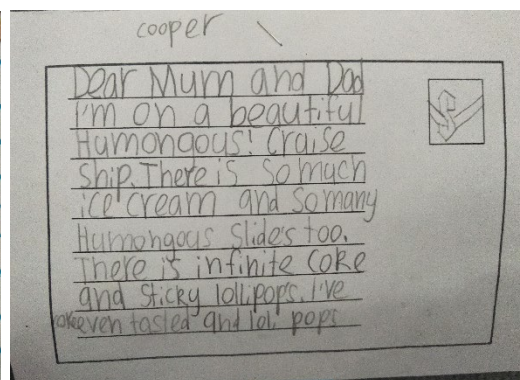 cooper
Dear Mum and Dad
I'm on a beautiful
Humongous! Craise
Ship. There is so much
ice cream and so many
Humongous slides too.
There is infinite coke
and sticky lollipops. I've
coke even tasted and loli pops